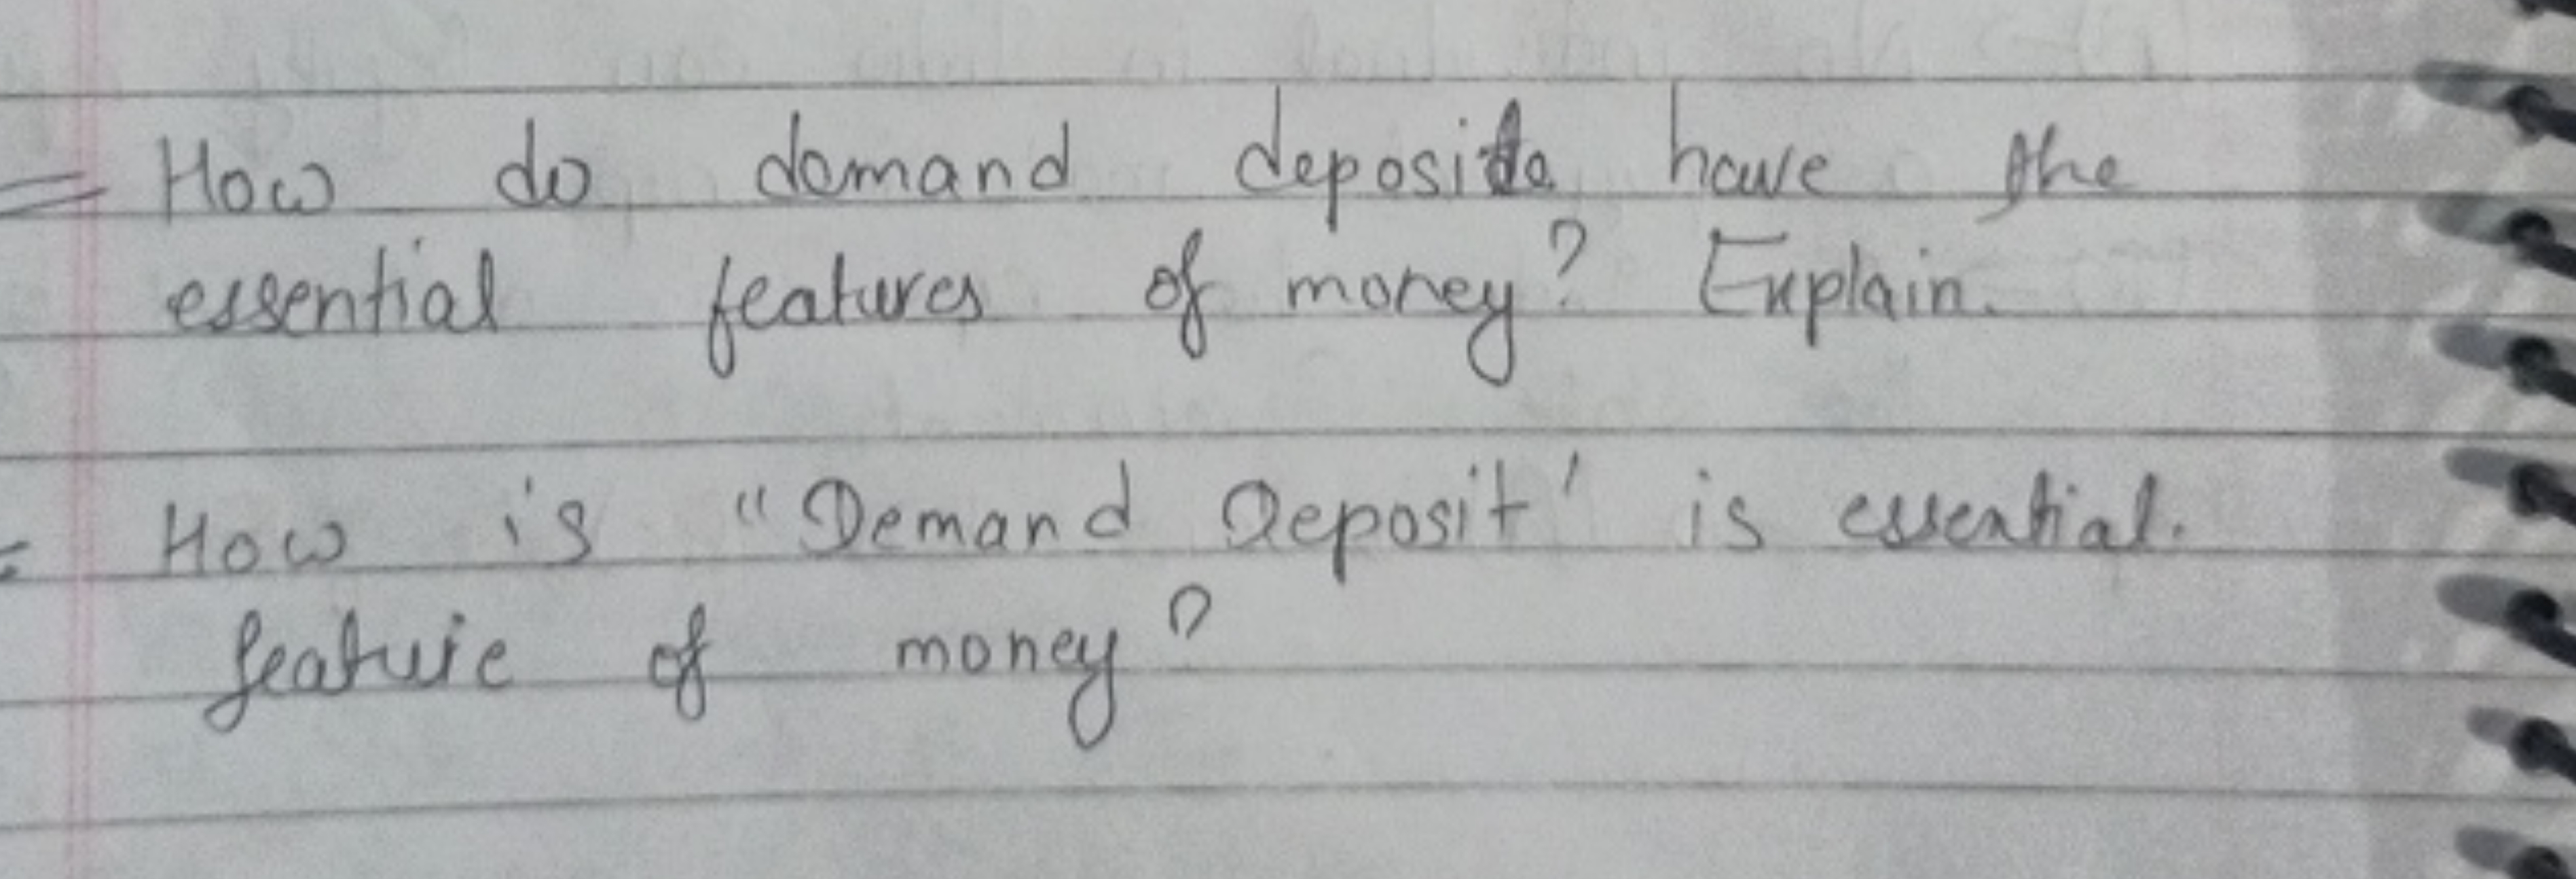 How do demand deposits have the
essential features of money? Explain.
How is "Demand Deposit' is essential.
feature of money?